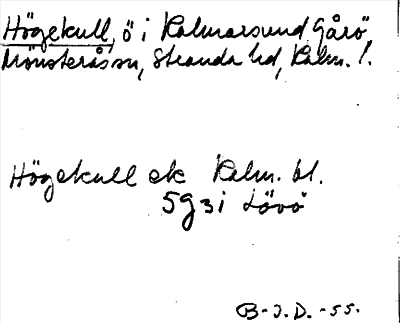 Högekull, ö i Kalmarsund, Gårö,
Mönsterås sn, Stranda hd, Kalm. l.
Högekull ek Kalm. bl.
5 g 3 i Lövö
B-J.D.-55.